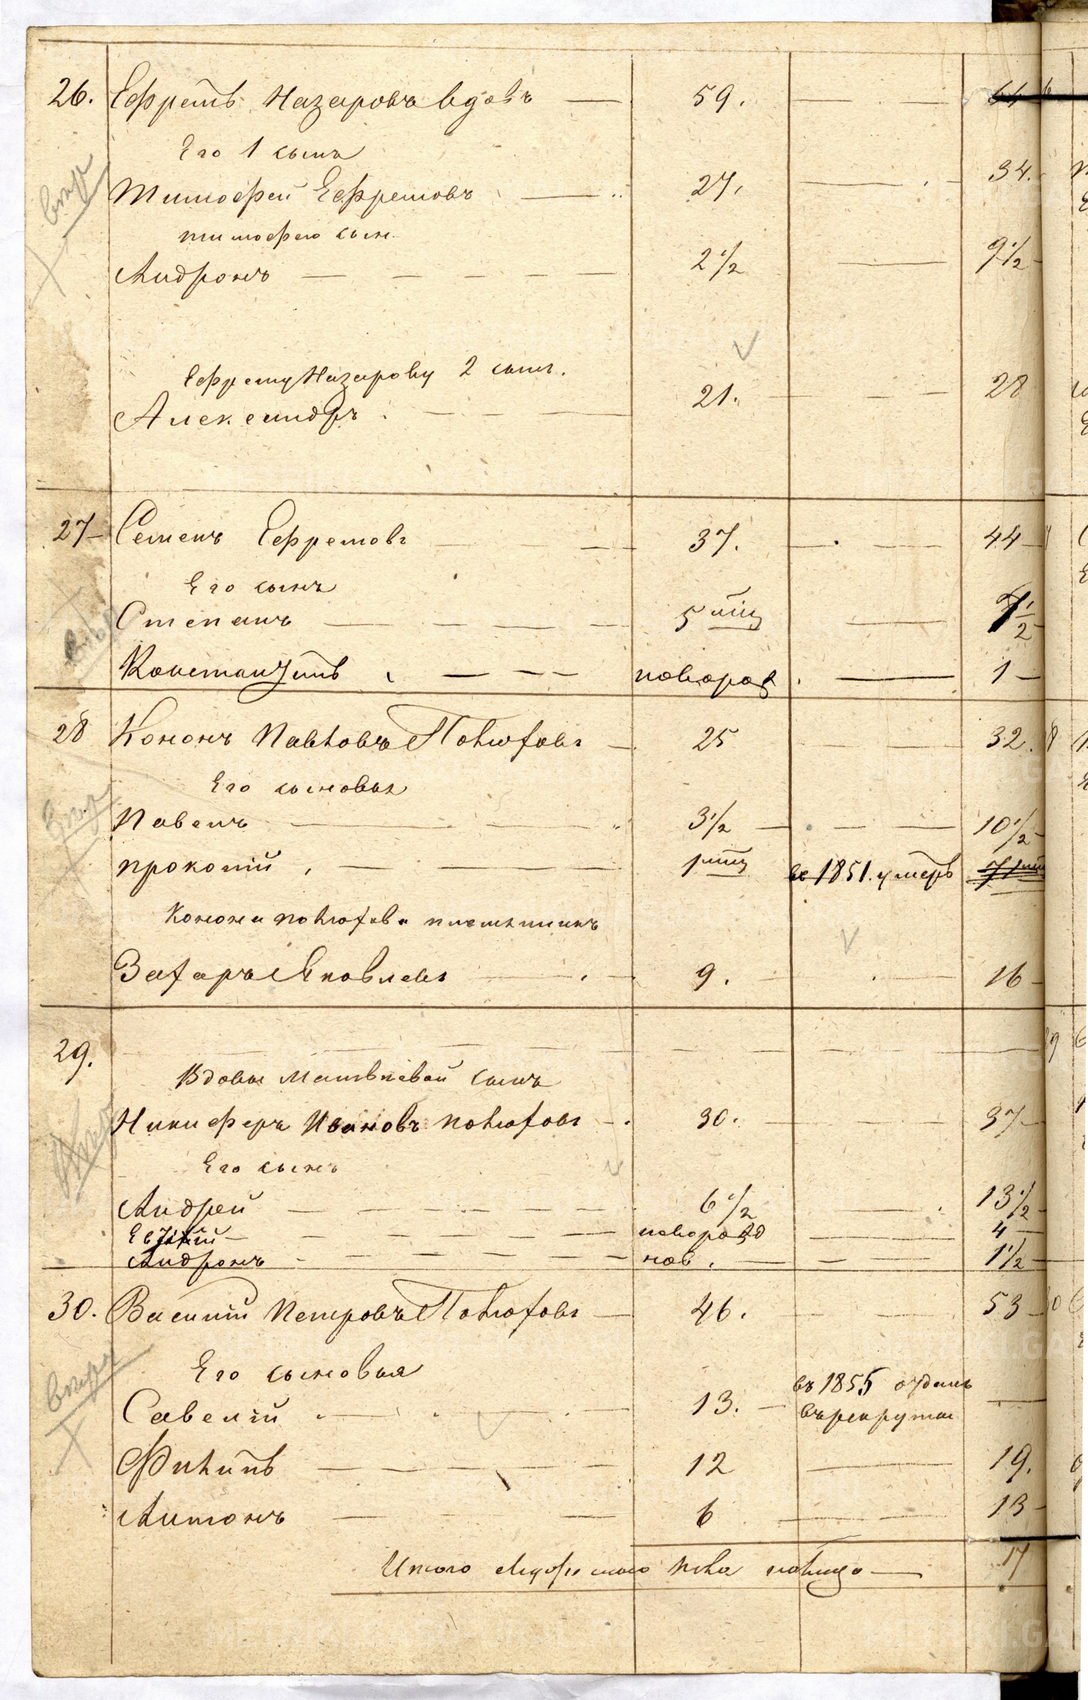 26. Ефремъ Назаровъ вдовъ — 59. — —
Его 1 сынъ
Тимофей Ефремовъ — 27. — 34.
Тимофея сын
Андронъ — — — — 2 1/2 — 9 1/2
Ефрему Назарову 2 сынъ.
Александръ — — — 21. — — 28
27 Семенъ Ефремовъ — 37. — — 44
Его сынъ
Степанъ — — — — 5 мц — 7 1/2
Константинъ — — — новорож — 1
28 Кононъ Павловъ Полютовъ — 25 — — 32.
Его сыновья
Павелъ — — 3 1/2 — — 10 1/2
Прокопій — — — 1 мц въ 1851. умеръ
Конона Полютова племянникъ
Захаръ Яковлевъ — 9. — 16
29. — — — —
Вдовы Матвѣевой сынъ
Никифоръ Ивановъ Полютовъ — 30. — — 37
Его сынъ
Андрей — — — — 6 1/2 — — 13 1/2
новорожд — 4
Андронъ — — — — нов. — — 1 1/2
30. Василій Петровъ Полютовъ — 46. — — 53
Его сыновья
Савелій — — — 13. — въ 1855 отданъ
въ рекруты —
Филипъ — — — 12 — 19.
Антонъ — — — 6 — — 13
Итого мужеска пола налицо — 17